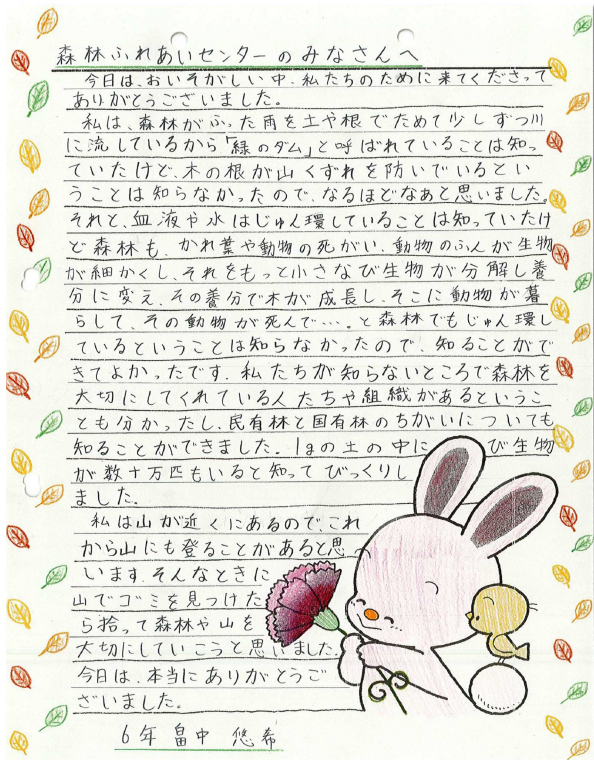 森林ふれあいセンターのみなさんへ
今日は、おいそがしい中、私たちのために来てくださって
ありがとうございました。
私は、森林がふった雨を土や根でためて少しずつ川
に流しているから「緑のダム」と呼ばれていることは知っ
ていたけど、木の根が山くずれを防いでいるとい
うことは知らなかったので、なるほどなあと思いました。
それと、血液や水はじゅん環していることは知っていたけ
ど森林も、かれ葉や動物の死がい、動物のふんが生物
が細かくし、それをもっと小さなび生物が分解し養
分に変え、その養分で木が成長し、そこに動物が暮
らして、その動物が死んで…。と森林でもじゅん環し
ているということは知らなかったので、知ることがで
きてよかったです。私たちが知らないところで森林を
大切にしてくれている人たちや組織があるというこ
とも分かったし、民有林と国有林のちがいについても
知ることができました。1gの土の中にび生物
が数十万匹もいると知ってびっくりし
ました。
私は山が近くにあるので、これ
から山にも登ることがあると思
います。そんなときに
山でゴミを見つけた
ら拾って森林や山を
大切にしていこうと思いました。
今日は、本当にありがとうご
ざいました。
6年 畠中 悠希